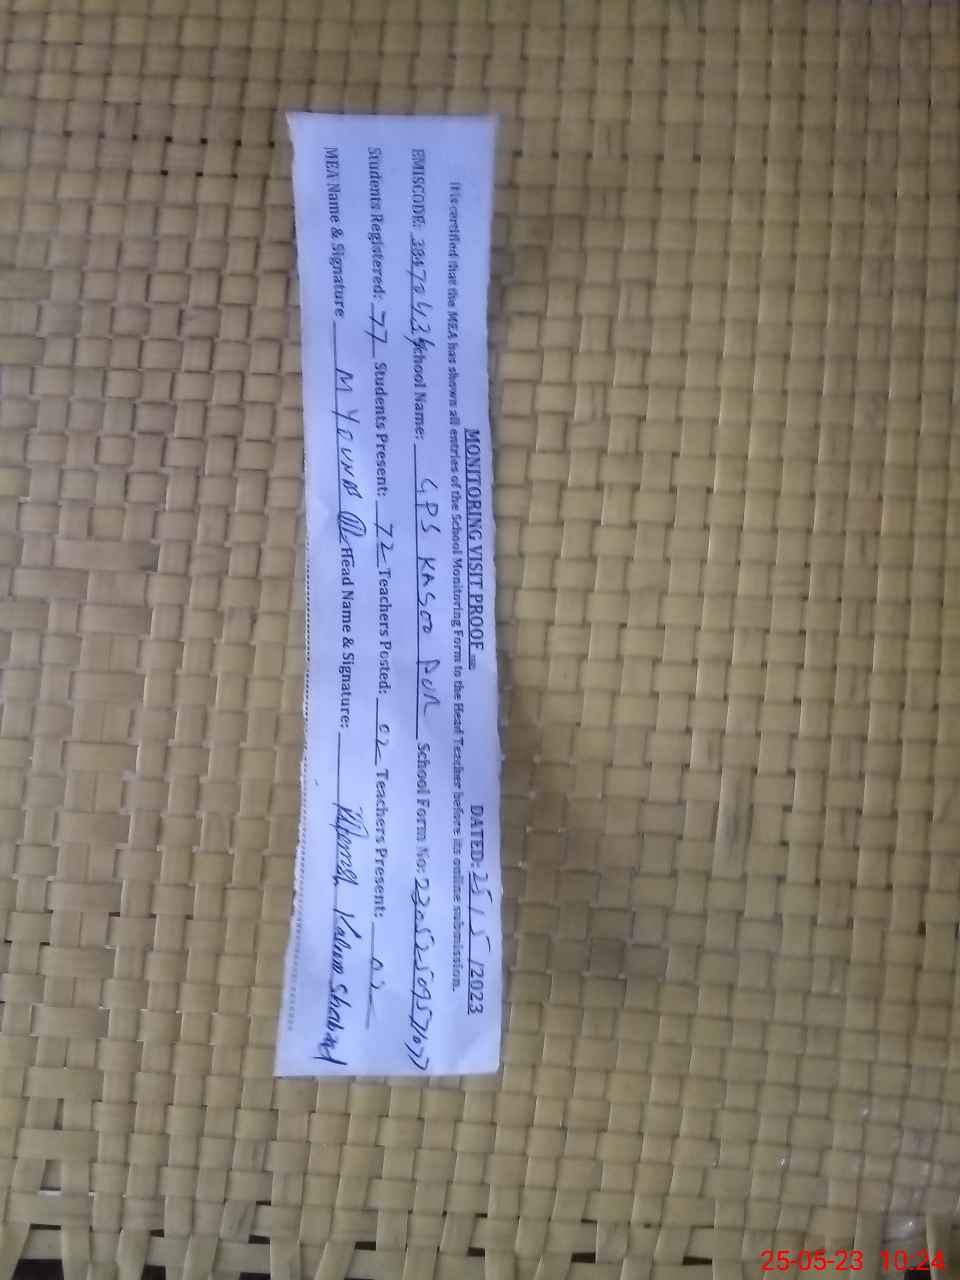 MONITORING VISIT PROOF DATED: 25/5/2023
It is certified that the MEA has shown all entries of the School Monitoring Form to the Head Teacher before its online submission.
EMISCODE: School Name: GPS KASOO PUR School Form No:
Students Registered: 77 Students Present: 72 Teachers Posted: 02 Teachers Present: 02
MEA Name & Signature M YOUNAS Head Name & Signature: Kalum Shahzad
25-05-23 10:24